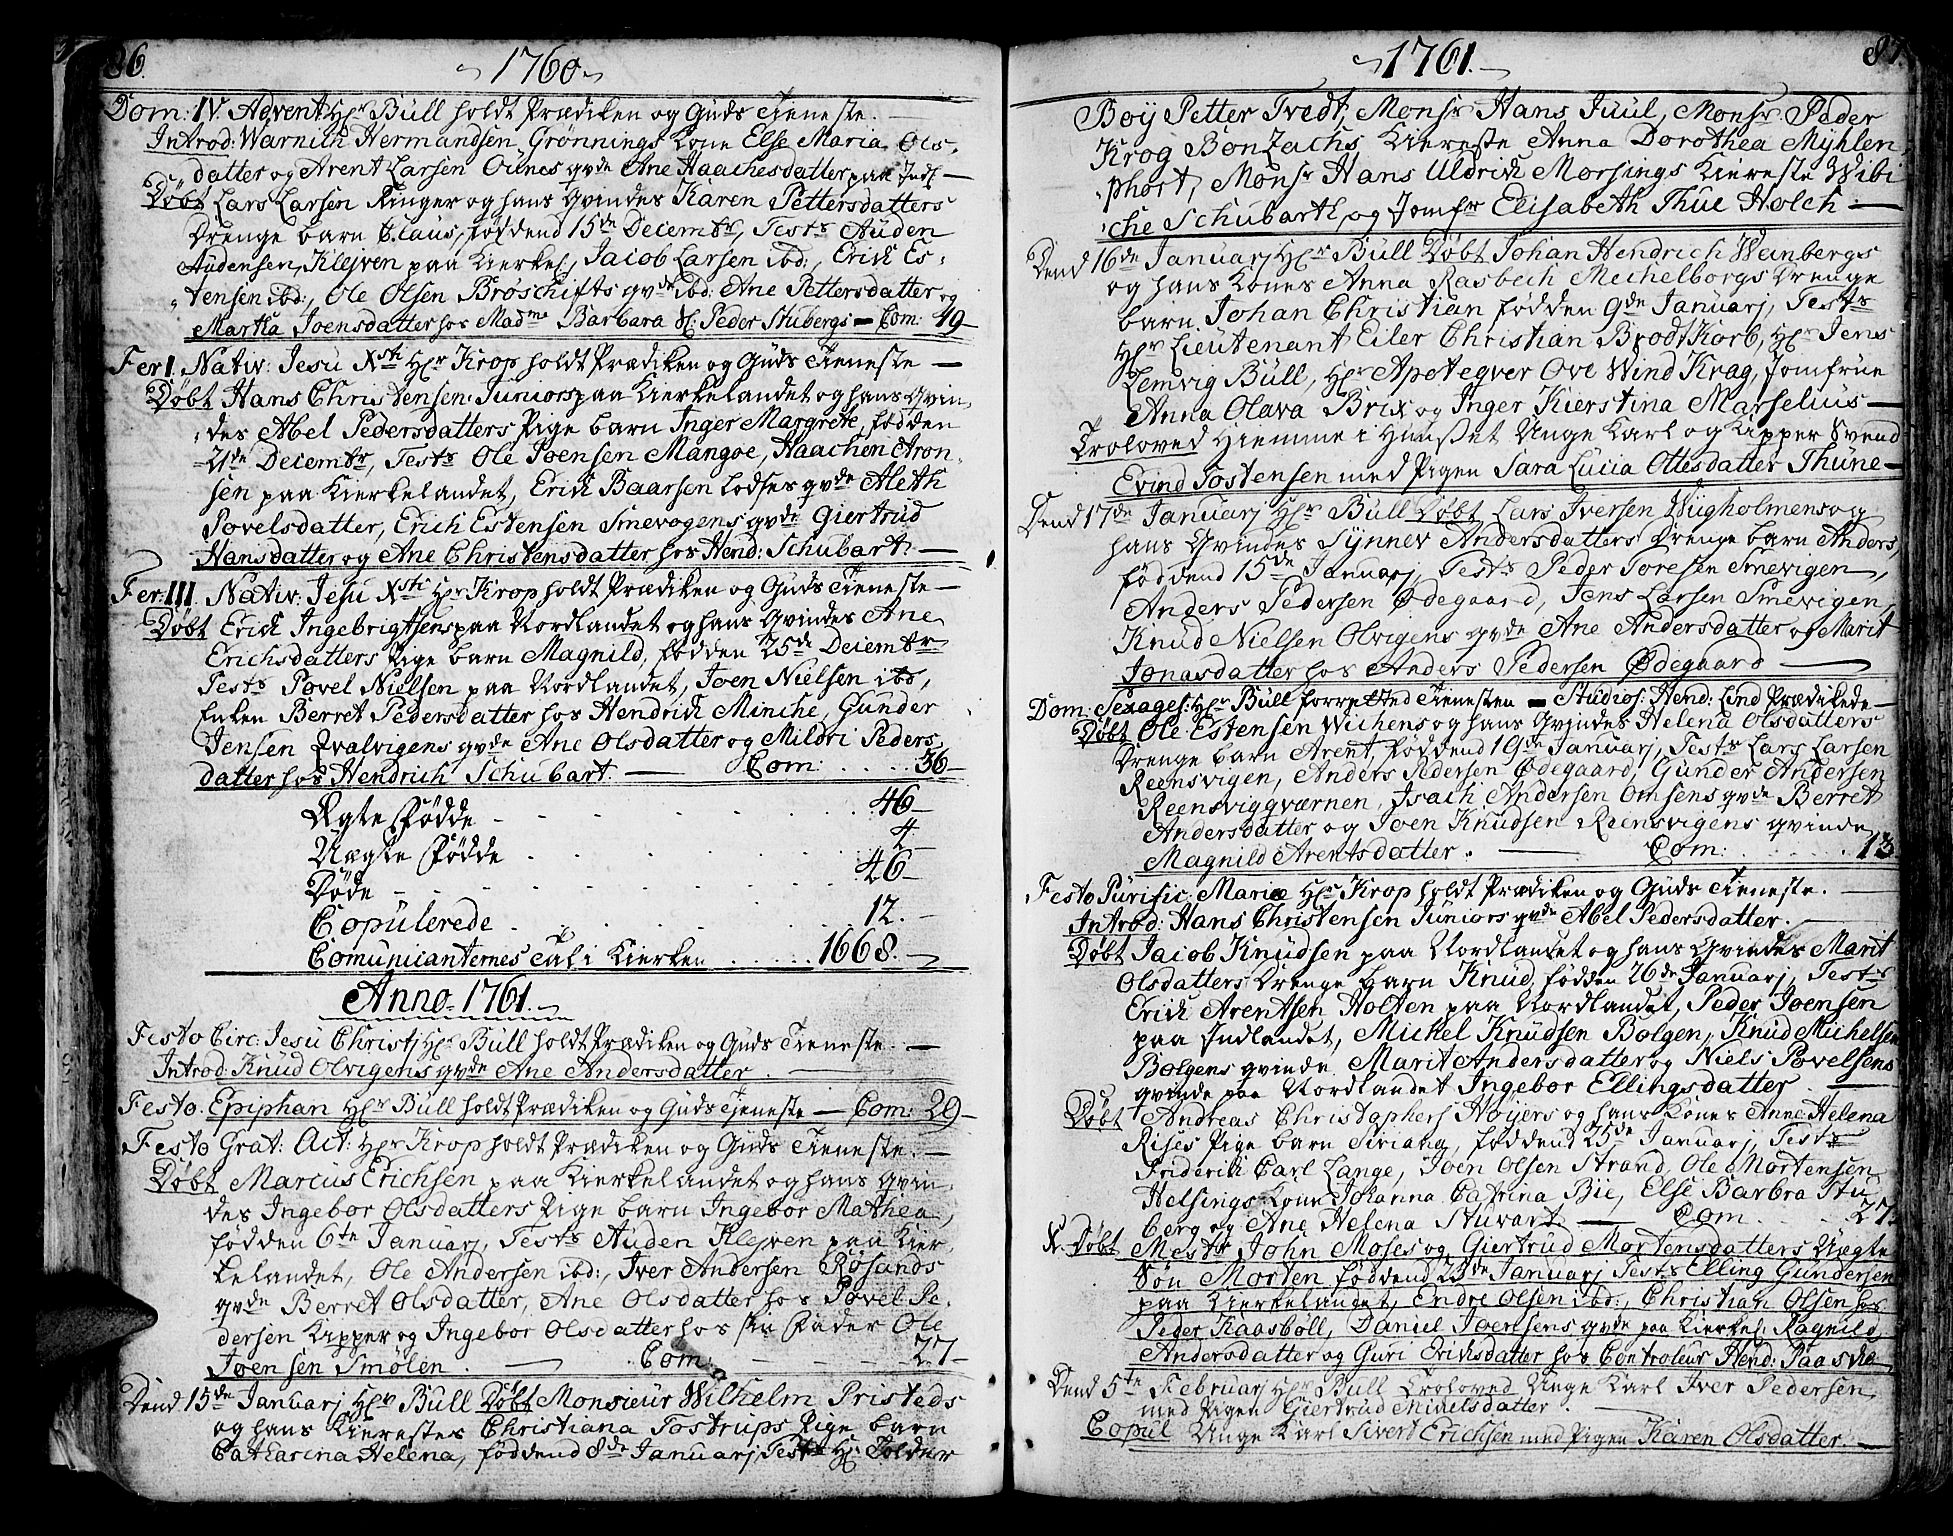 86.
1760
Dom: IV. Advent Hr Bull holdt Prædiken og Guds Tieneste.
Introd: Warnich Hermandsen Grønnings Kone Else Maria Ols-
datter og Arent Larsen Ounes qvde Ane Haachesdatter paa Indl
Døbt Lars Larsen Ringer og hans Qvindes Karen Pettersdatters
Drenge barn Claus, fød dend 15de Decembr, Tests Auden
Audensen, Klejven paa Kierkel, Jacob Larsen ibd:, Erick Es-
tensen ibd:, Ole Olsen Brøschifts qvde ibd: Ane Pettersdatter og
Martha Joensdatter hos Madme Barbara Sl: Peder Stubergs - Com: 49
Fer I. Nativ: Jesu Xsti Hr Krop holdt Prædiken og Guds Tieneste
Døbt Hans Christensen Juniors paa Kierkelandet og hans Qvin-
des Abel Pedersdatters Pige barn Inger Margrete, født den
21de Decembr, Tests Ole Joensen Mangoe, Haachen Aron-
sen paa Kierkelandet, Erick Baarsen Lodses qvde Aleth
Povelsdatter, Erich Estensen Smevogens qvde Giertrud
Hansdatter og Ane Christensdatter hos Hend: Schubart
Fer: III. Nativ: Jesu Xsti Hr Krop holdt Prædiken og Guds Tieneste
Døbt Erick Ingebrigtsens paa Nordlandet og hans Qvindes Ane
Erichsdatters Pige barn Magnild, født den 25de Decembr
Tests Povel Nielsen paa Nordlandet, Joen Nielsen ibd,
Enken Berret Pedersdatter hos Hendrich Minche, Gunder
Jensen Qvalvigens qvde Ane Olsdatter og Mildri Peders
datter hos Hendrich Schubart. Com: 36
Ægte Fødde 46
Uægte Fødde 4
Døde 46
Copulerede 12.
Comunicanternes Tal i Kierken 1668.
Anno 1761.
Festo Circ: Jesu Christi Hr Bull holdt Prædiken og Guds Tieneste.
Introd: Knud Olvigens qvde Ane Andersdatter.
Festo Epiphan Hr Bull holdt Prædiken og Guds Tieneste - Com: 29
Festo Grat: Act: Hr Krop holdt Prædiken og Guds Tieneste.
Døbt Marcus Erichsen paa Kierkelandet og hans Qvin-
des Ingebor Olsdatters Pige barn Ingebor Mathea,
født den 6te Januarj, Tests Auden Klejven paa Kier-
kelandet, Ole Andersen ibd:, Iver Andersen Røsands
qvde Berret Olsdatter, Ane Olsdatter hos Povel Pe-
dersen Kipper og Ingebor Olsdatter hos sin Fader Ole
Joensen Smølen. Com: 27
Dend 15de Januarj Hr Bull Døbt Monsieur Wilhelm Pristeds
og hans Kierestes Christiana Tostrups Pige barn
Catharina Helena, fød dend 8de Januarj, Tests Hr Tolder
1761.
87
Boy Petter Tvedt, Monsr Hans Juul, Monsr Peder
Krog Bonzachs Kiereste Anna Dorothea Myhlen
phort, Monsr Hans Uldrich Morsings Kiereste Wibi
che Schubarth, og Jomfr Elisabeth Thue Holch
Dend 16de Januarj Hr Bull Døbt Johan Hendrich Weinbergs
og hans Kones Anna Rasbech Mechelborgs Drenge
barn Johan Christian født den 9de Januarj, Tests
Hr Lieutenant Eiler Christian Brodtkorb, Hr Jens
Lemvig Bull, Hr Apoteqver Ove Wind Krag, Jomfrue
Anna Olava Brix og Inger Kierstina Marselius
Troloved Hiemme i Huuset Unge Karl og Kipper Svend
Evind Tostensen med Pigen Sara Lucia Ottesdatter Thune
Dend 17de Januarj Hr Bull Døbt Lars Iversen Wugholmens og
hans Qvindes Synnev Andersdatters Drenge barn Anders
fød dend 15de Januarj, Tests Peder Toresen Smevigen,
Anders Pedersen Ødegaard, Jens Larsen Smevigen,
Knud Nielsen Olvigens qvde Ane Andersdatter og Marit
Jonasdatter hos Anders Pedersen Ødegaard
Dom: Sexages: Hr Bull forretted Tienesten - Studios: Hend: Lind Prædikede
Døbt Ole Estensen Wichens og hans Qvindes Helena Olsdatters
Drenge barn Arent, fød dend 19de Januarj, Tests Lars Larsen
Reensvigen, Anders Pedersen Ødegaard, Gunder Andersen
Reensviggværnen, Isach Andersen Omsens qvde Berret
Andersdatter og Joen Knudsen Reensvigens qvinde
Magnild Arentsdatter. Com: 13
Festo Purific: Mariæ Hr Krop holdt Prædiken og Guds Tieneste.
Introd: Hans Christensen Juniors qvde Abel Pedersdatter.
Døbt Jacob Knudsen paa Nordlandet og hans Qvindes Marit
Olsdatters Drenge barn Knud, født den 26de Januarj, Tests
Erich Arentsen Holten paa Nordlandet, Peder Joensen
paa Indlandet, Michel Knudsen Bolgen, Knud Michelsen
Bolgens qvinde Marit Andersdatter og Niels Povelsens
qvinde paa Nordlandet Ingebor Ellingsdatter.
Døbt Andreas Christophers Høyers og hans Kones Anne Helena
Rises Pige barn Siriana, fød dend 25de Januarj, Tests
Friderich Carl Lange, Joen Olsen Strand, Ole Mortensen
Helsings Kone Johanna Catrina Bie, Else Barbra Stu
berg og Ane Helena Stuvart. Com 27.
X. Døbt Mestr John Moses og Giertrud Mortensdatters Uægte
Søn Morten fød dend 23de Januarj Tests Elling Gundersen
paa Kierkelandet, Endre Olsen ibd:, Christian Olsen hos
Peder Kaasbøll, Daniel Joensens qvde paa Kierkel: Ragnild
Andersdatter og Guri Erichsdatter hos Controleur Hend: Paaske
Dend 5te Februarj Hr Bull Troloved Unge Karl Iver Pedersen
med Pigen Giertrud Nielsdatter.
Copul Unge Karl Sivert Erichsen med Pigen Karen Olsdatter.